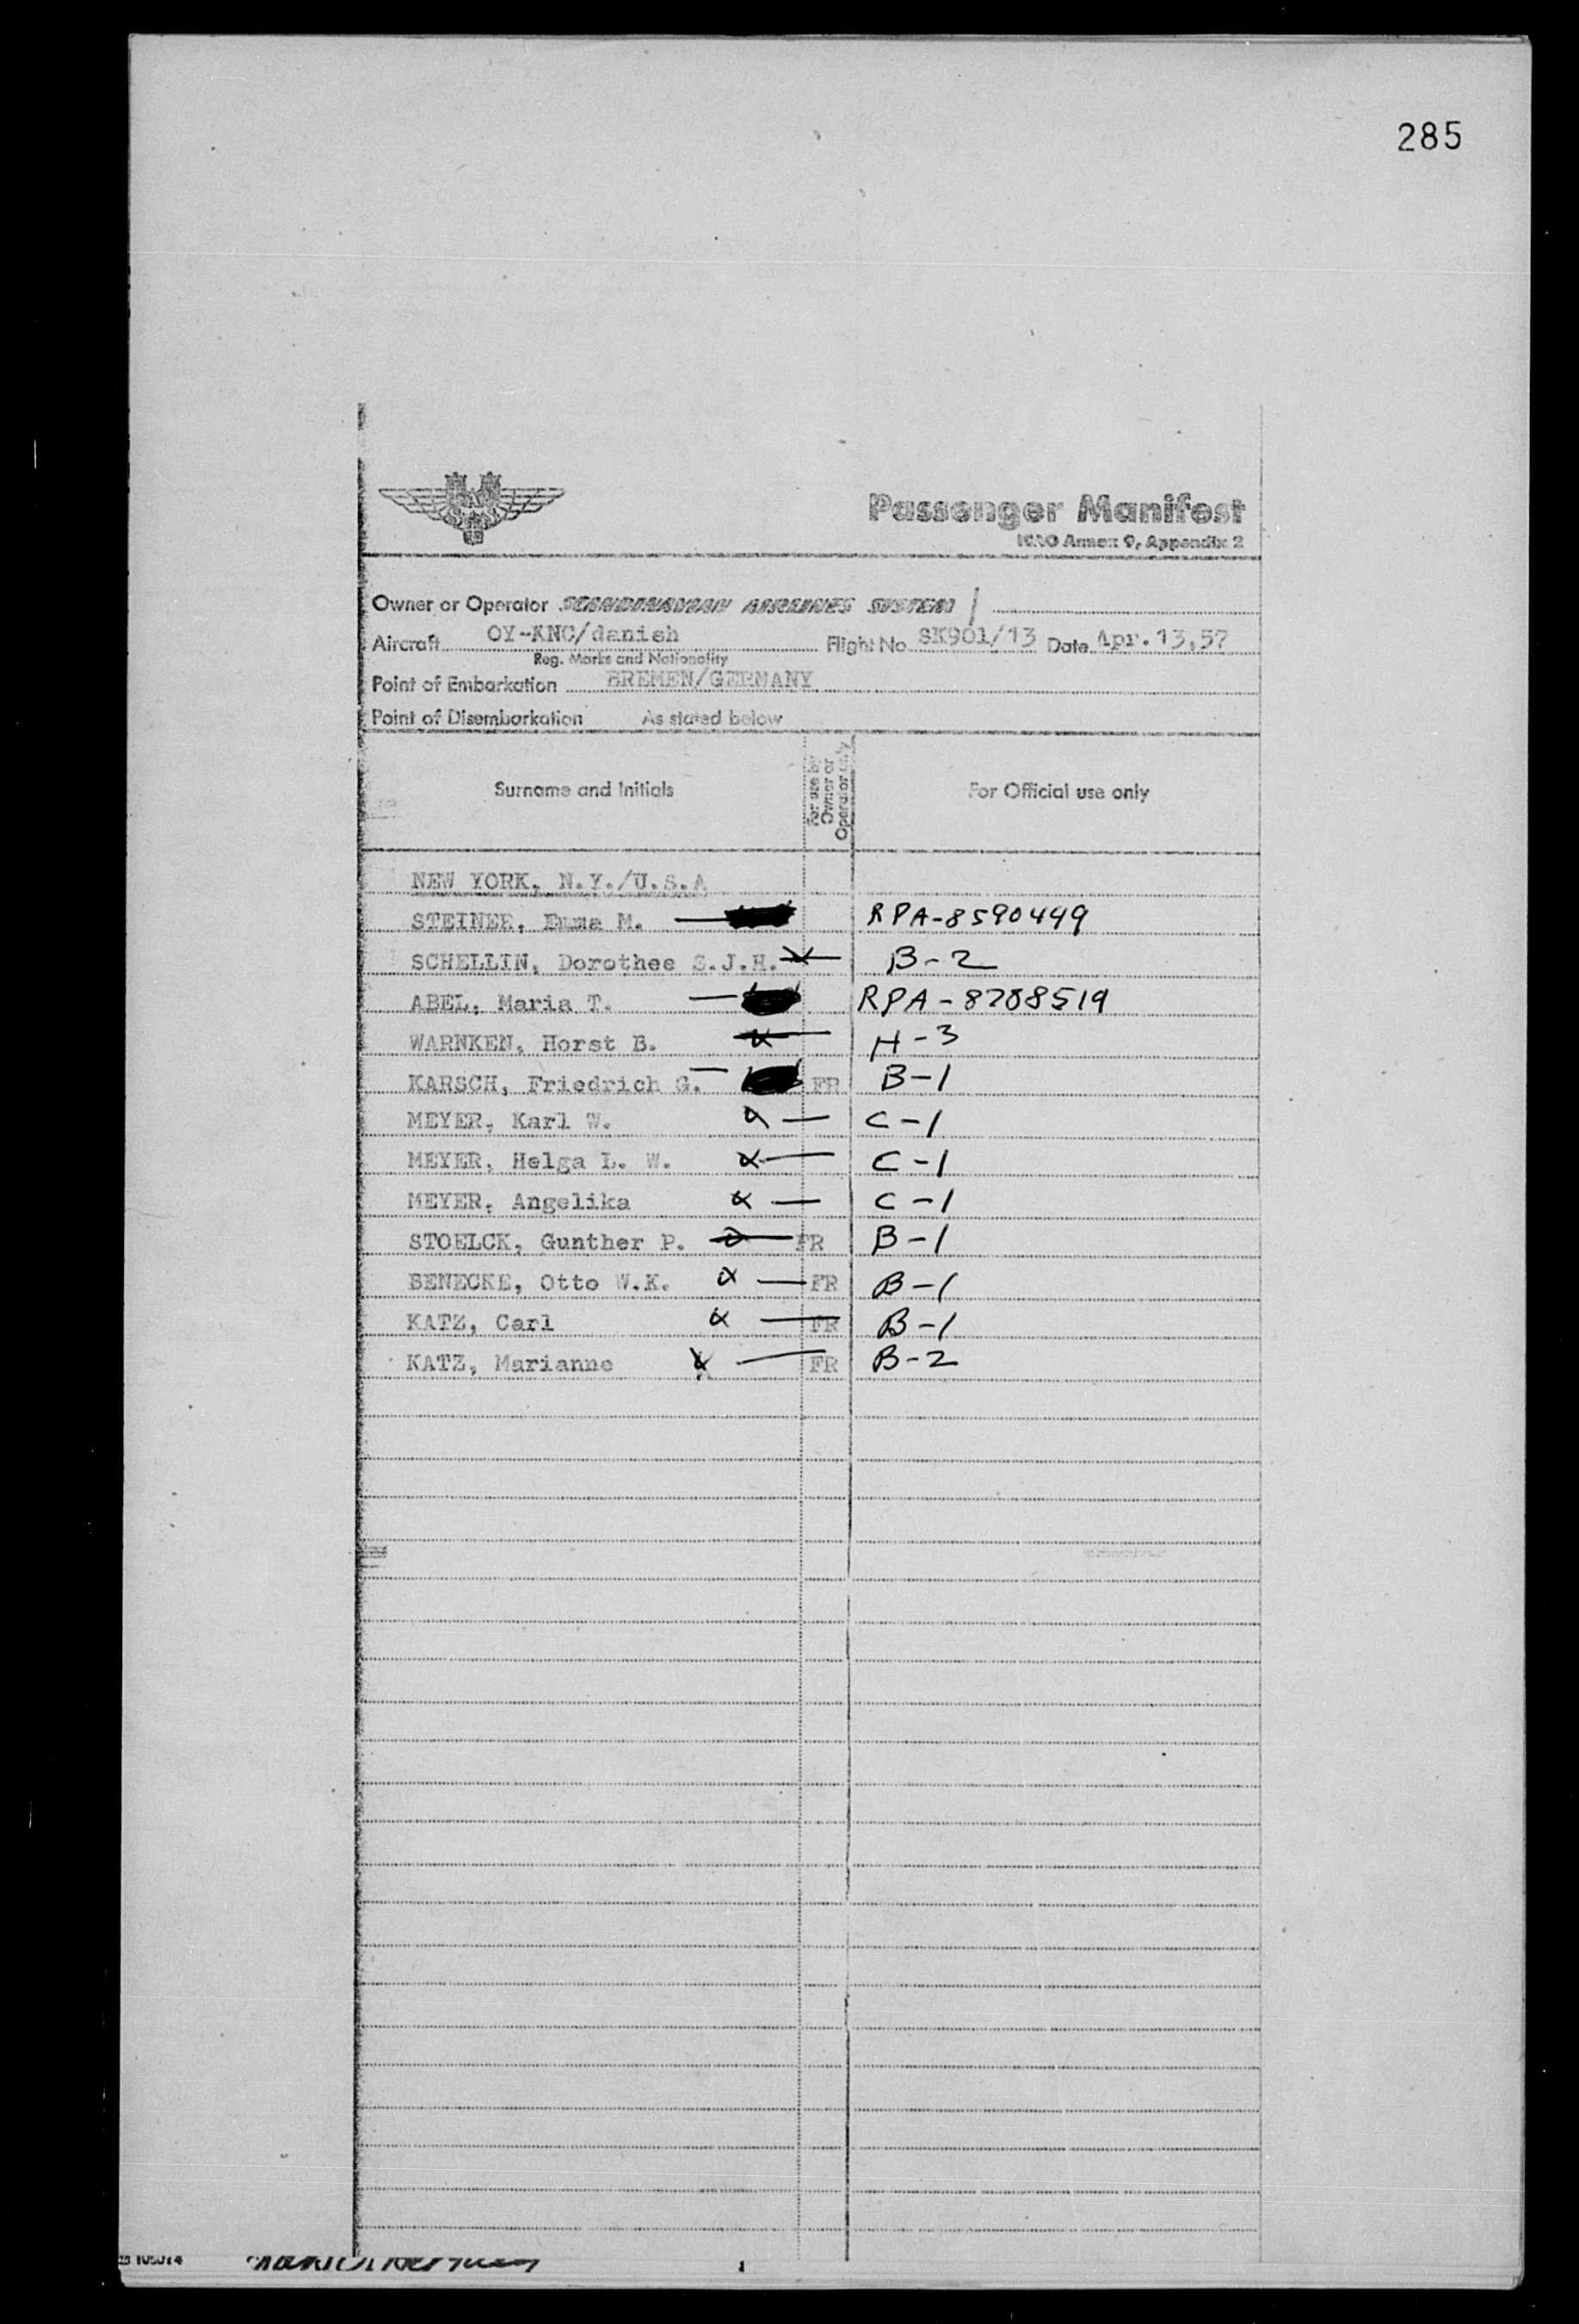 285
Passenger Manifest
ICAO Annex 9, Appendix 2
Owner or Operator SCANDINAVIAN AIRLINES SYSTEM
Aircraft OY-KNC/danish Flight No SK901/13 Date Apr. 13,57
Reg. Marks and Nationality
Point of Embarkation BREMEN/GERMANY
Point of Disembarkation As stated below
Surname and Initials For use by Owner or Operator only For Official use only
NEW YORK, N.Y./U.S.A
STEINER, Emma M. RPA-8590499
SCHELLIN, Dorothee S.J.H. X B-2
ABEL, Maria T. RPA-8788519
WARNKEN, Horst B. X H-3
KARSCH, Friedrich G. FR B-1
MEYER, Karl W. X C-1
MEYER, Helga L. W. X C-1
MEYER, Angelika X C-1
STOELCK, Gunther P. FR B-1
BENECKE, Otto W.K. X FR B-1
KATZ, Carl X FR B-1
KATZ, Marianne X FR B-2